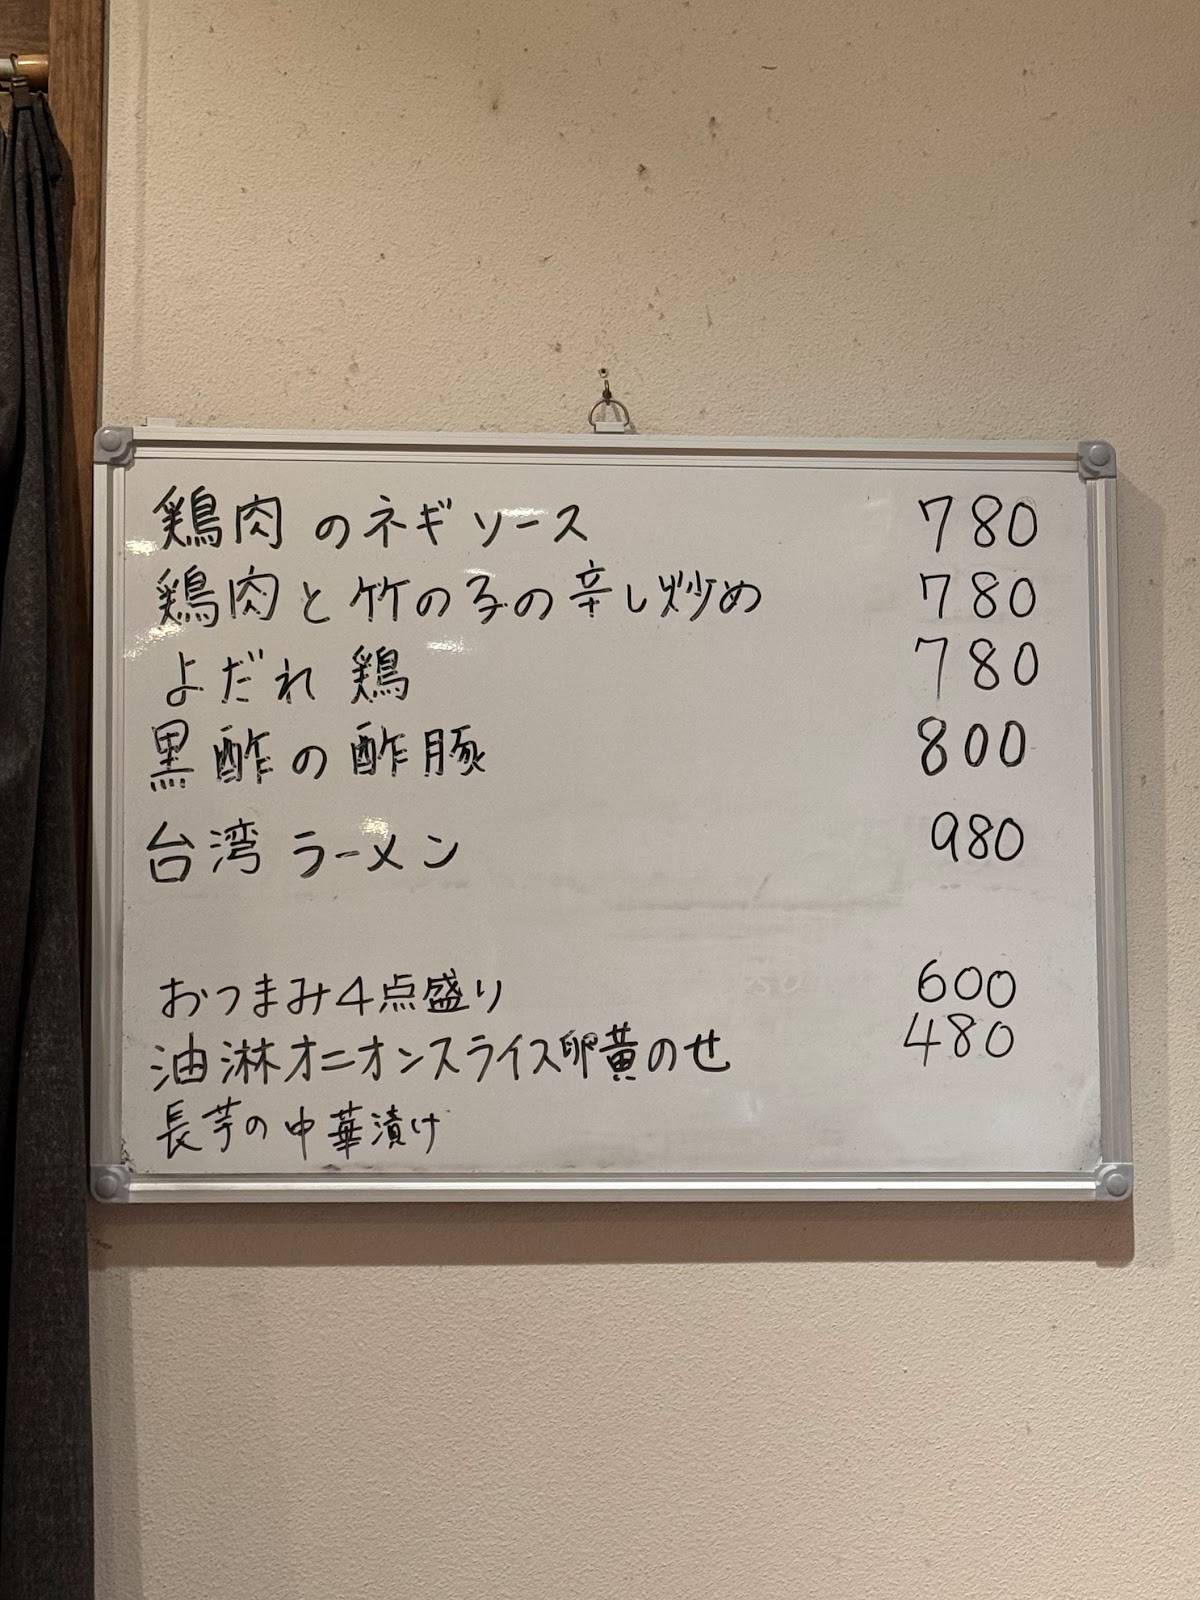 鶏肉のネギソース 780
鶏肉と竹の子の辛し炒め 780
よだれ鶏 780
黒酢の酢豚 800
台湾ラーメン 980
おつまみ4点盛り 600
油淋オニオンスライス卵黄のせ 480
長芋の中華漬け